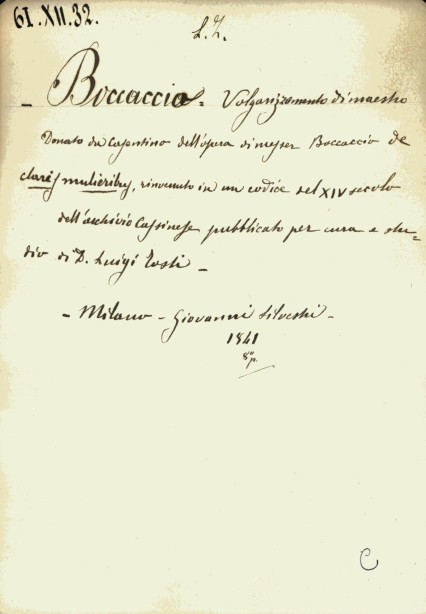 61.XII.32.
L.Z.
— Boccaccio = Volgarizzamento di maestro
Donato da Casentino dell'opera di messer Boccaccio de
claris mulieribus, rinvenuto in un codice del XIV secolo
dell'archivio Cassinese pubblicato per cura e stu=
dio di D. Luigi Tosti —
— Milano — Giovanni Silvestri —
1841
8° p.
C